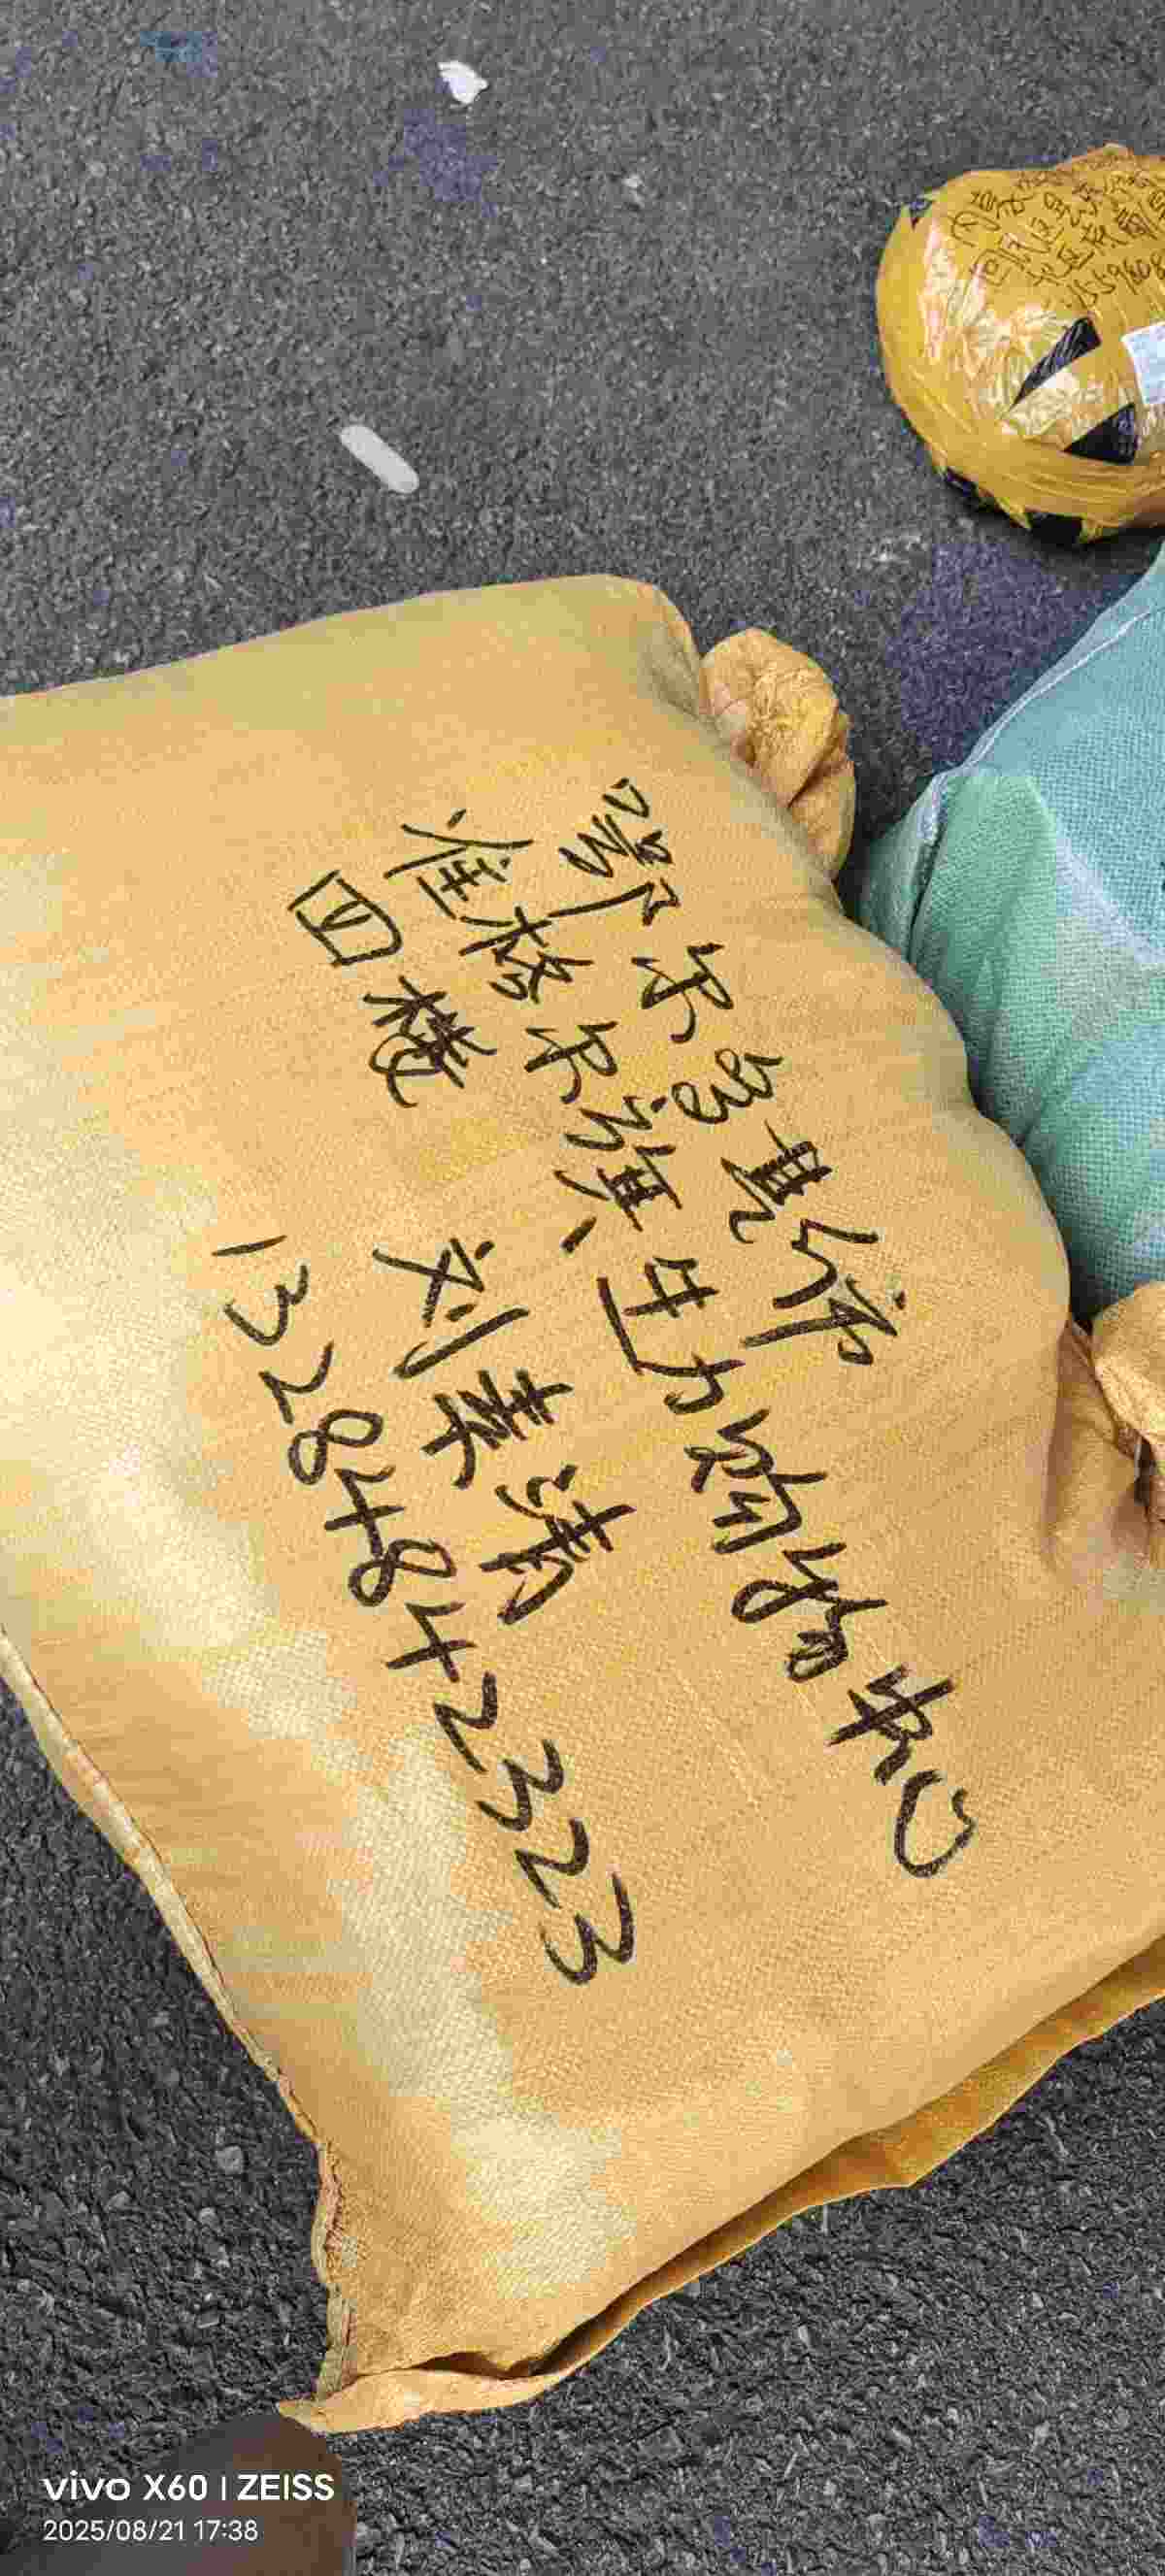 鄂尔多斯市
准格尔旗、生力购物中心
四楼
刘清
13284842323
559608
vivo X60 | ZEISS
2025/08/21 17:38